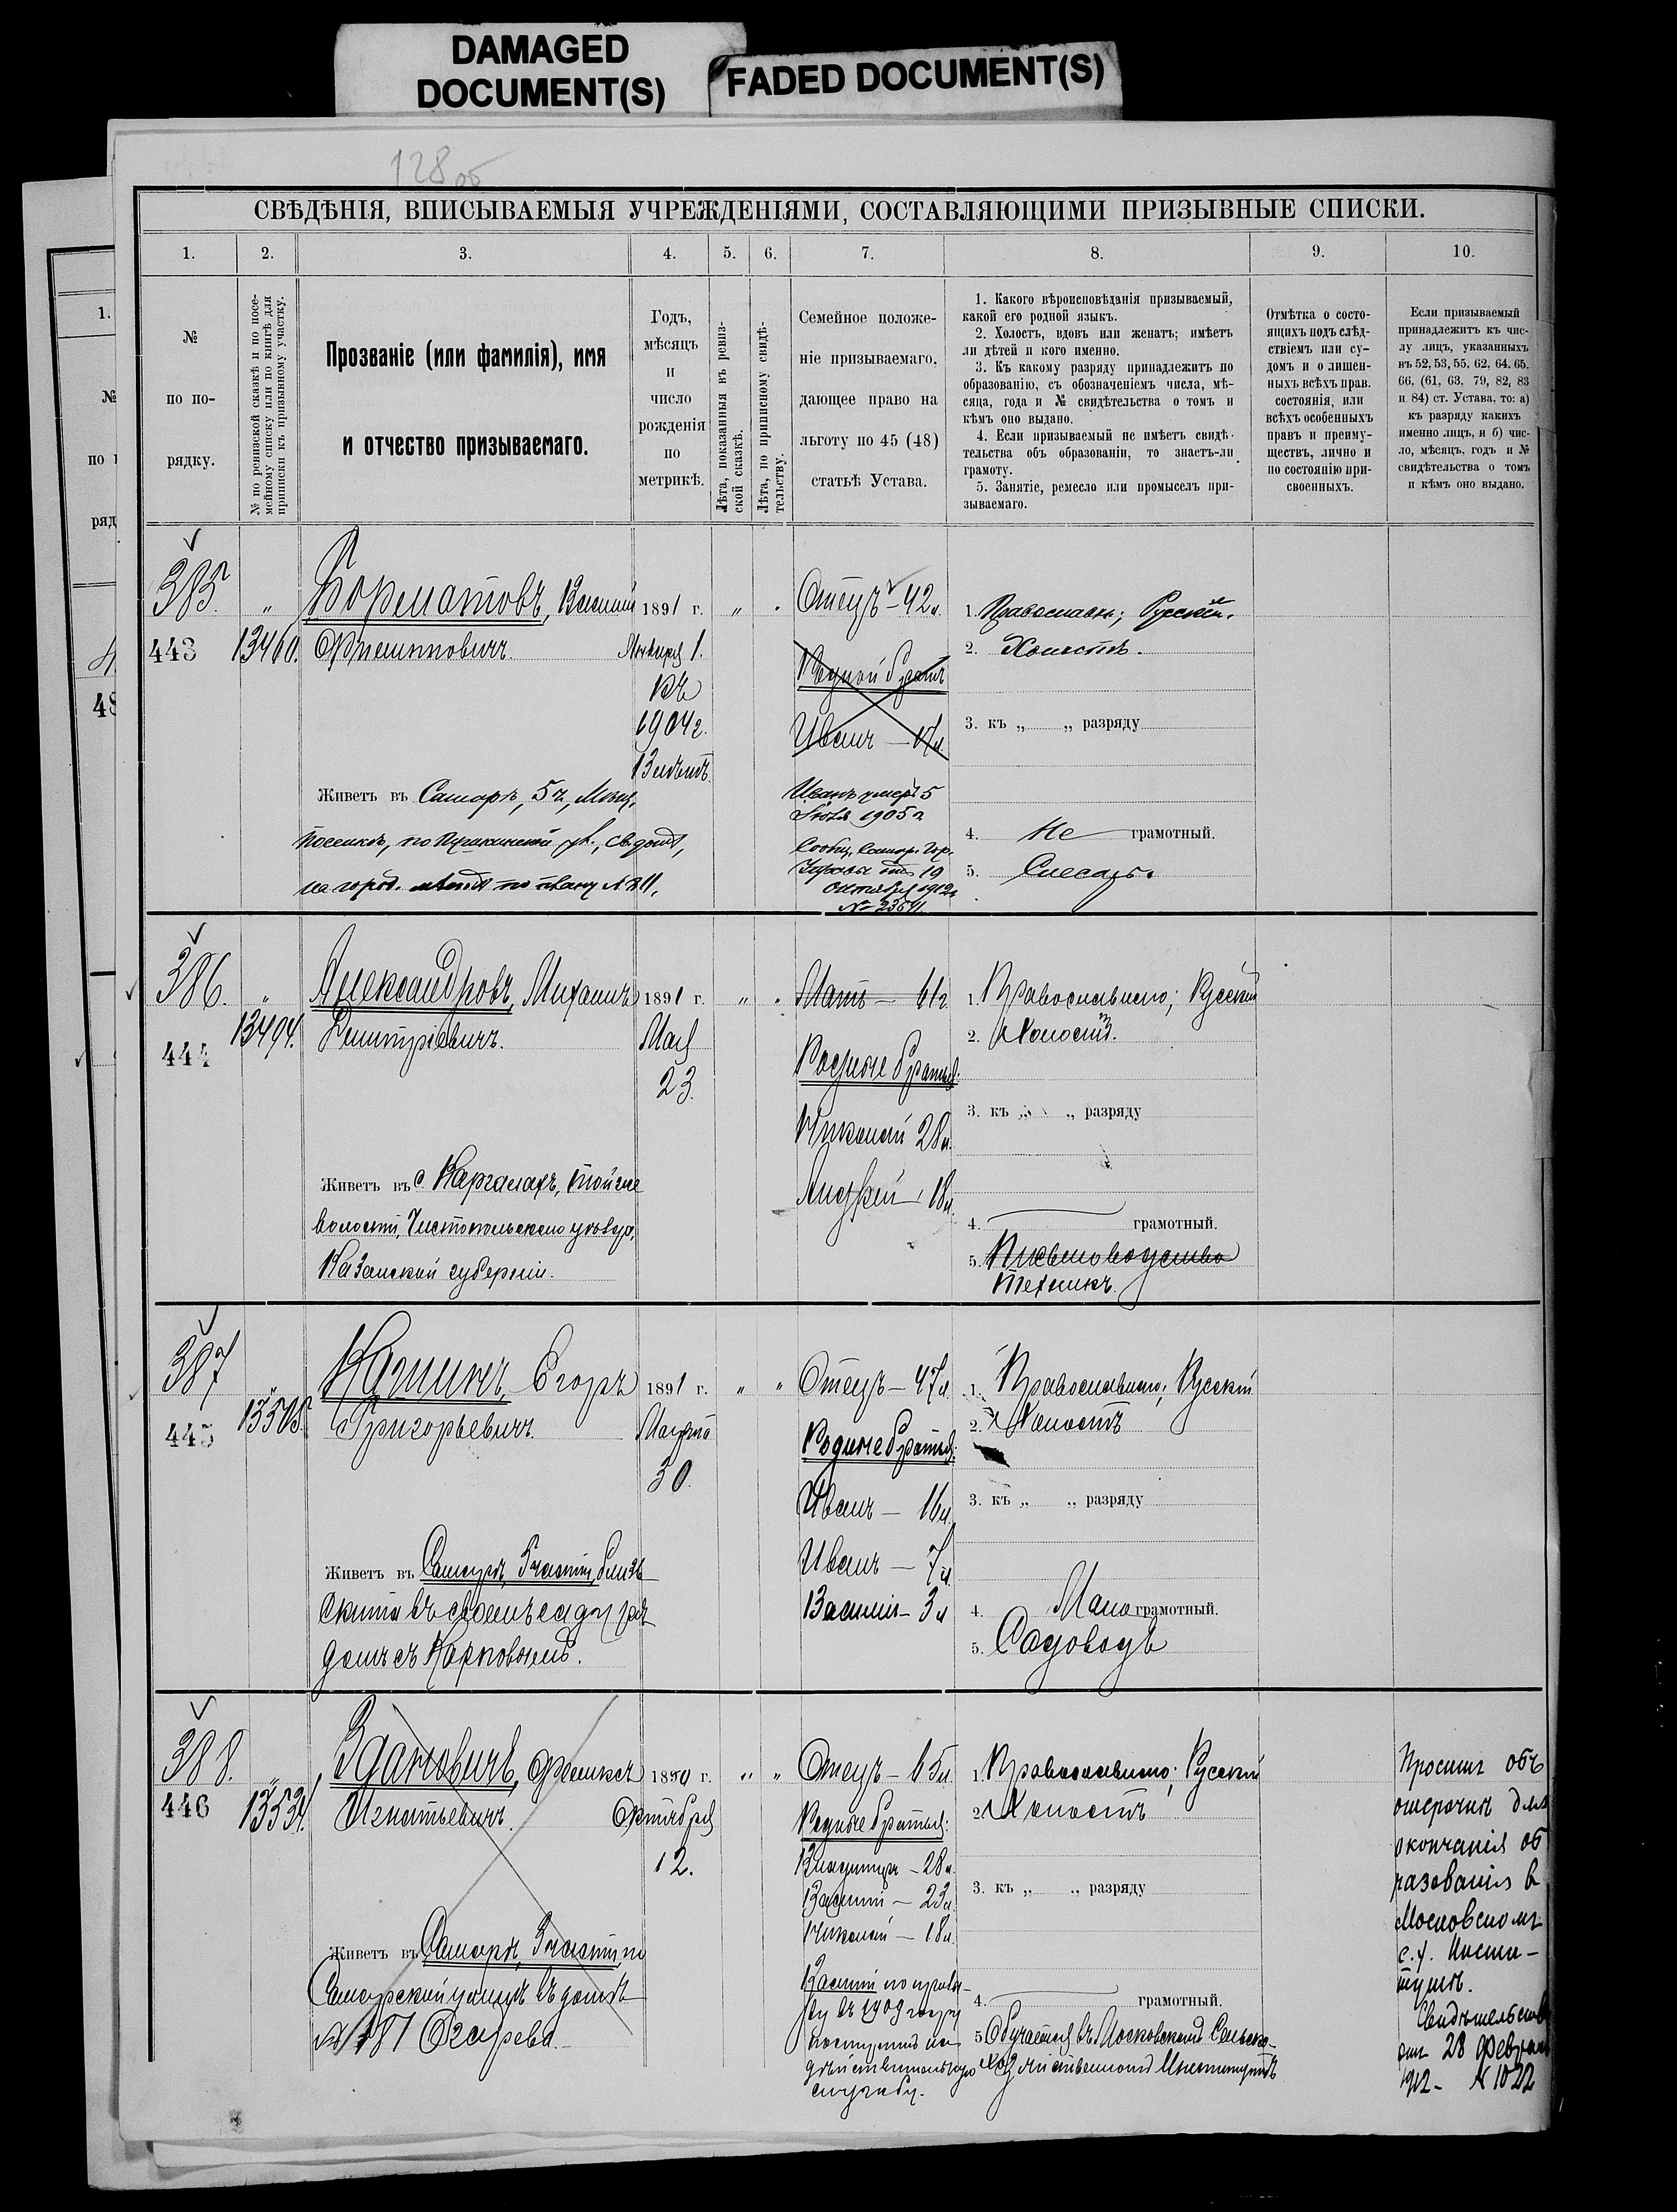 DAMAGED
DOCUMENT(S)
FADED DOCUMENT(S)
128 об
СВѢДѢНІЯ, ВПИСЫВАЕМЫЯ УЧРЕЖДЕНІЯМИ, СОСТАВЛЯЮЩИМИ ПРИЗЫВНЫЕ СПИСКИ.
1. 2. 3. 4. 5. 6. 7. 8. 9. 10.
№
по по-
рядку.
№ по ревизской сказкѣ и по посе-
мейному списку или по книгѣ для
приписки къ призывному участку.
Прозваніе (или фамилія), имя
и отчество призываемаго.
Годъ,
мѣсяцъ
и
число
рожденія
по
метрикѣ.
Лѣта, показанныя въ ревиз-
ской сказкѣ.
Лѣта, по приписному свидѣ-
тельству.
Семейное положе-
ніе призываемаго,
дающее право на
льготу по 45 (48)
статьѣ Устава.
1. Какого вѣроисповѣданія призываемый,
какой его родной языкъ.
2. Холостъ, вдовъ или женатъ; имѣетъ
ли дѣтей и кого именно.
3. Къ какому разряду принадлежитъ по
образованію, съ обозначеніемъ числа, мѣ-
сяца, года и № свидѣтельства о томъ и
кѣмъ оно выдано.
4. Если призываемый не имѣетъ свидѣ-
тельства объ образованіи, то знаетъ-ли
грамоту.
5. Занятіе, ремесло или промыселъ при-
зываемаго.
Отмѣтка о состо-
ящихъ подъ слѣд-
ствіемъ или су-
домъ и о лишен-
ныхъ всѣхъ прав.
состоянія, или
всѣхъ особенныхъ
правъ и преиму-
ществъ, лично и
по состоянію при-
своенныхъ.
Если призываемый
принадлежитъ къ чис-
лу лицъ, указанныхъ
въ 52, 53, 55, 62, 64, 65,
66, (61, 63, 79, 82, 83
и 84) ст. Устава, то: а)
къ разряду какихъ
именно лицъ, и б) чис-
ло, мѣсяцъ, годъ и №
свидѣтельства о томъ
и кѣмъ оно выдано.
385.
443
13460.
Борматовъ, Василій
1891 г.
Января 1.
Къ
1904 г.
13 лѣтъ.
Живетъ въ Самарѣ, 5 ч.,
по Пушкинской ул., св. домъ,
Отецъ – 42 л.
Родной братъ
Иванъ – 17 л.
Иванъ умеръ 5
1905 г.
Сообщ. Самар. Гор.
Управы отъ 19
Октября 1912 г.
1. Православн; Русскій.
2. Холостъ.
3. къ „ „ разряду
4. Не грамотный.
5. Слесарь.
386.
444
13494.
Александровъ, Михаилъ
Дмитріевичъ.
1891 г.
Мая
23.
Живетъ въ с. Каргалахъ,
волости, Чистопольскаго уѣзда,
Казанской губерніи.
Мать – 61 г.
Родные братья:
Николай 28 л.
Андрей 18 л.
1. Православнаго; Русскій
2. Холостъ.
3. къ „ „ разряду
4. грамотный.
5. Пчеловодство
Техникъ.
387
445
13508.
Егоръ
Григорьевичъ.
1891 г.
Марта
30.
Живетъ въ Самарѣ, 5 части, близъ
Отецъ – 47 л.
Родные братья:
Иванъ – 16 л.
Иванъ – 7 л.
Василій – 3 л
1. Православнаго; Русскій
2. Холостъ
3. къ „ „ разряду
4. Мало грамотный.
5. Садоводъ
388.
446
13534.
Здановичъ, Феликсъ
Игнатьевичъ.
1890 г.
Октября
12.
Живетъ въ Самарѣ, 3 части, по
Самарской улицѣ въ домѣ
№ 181 Огарева.
Отецъ – 65 л.
Родные братья:
Владиміръ – 28 л.
Василій – 23 л.
Николай – 18 л.
Василій по призы-
ву въ 1909 году
поступилъ на
дѣйствительную
службу.
1. Православнаго; Русскій
2. Холостъ
3. къ „ „ разряду
4. грамотный.
5. Обучается въ Московскомъ Сельско-
хозяйственномъ Институтѣ
Проситъ объ
отсрочкѣ для
окончанія об
разованія в
Московскомъ
с.х. Инсти-
тутѣ.
Свидѣтельство
отъ 28 Февраля
1912 – № 1022